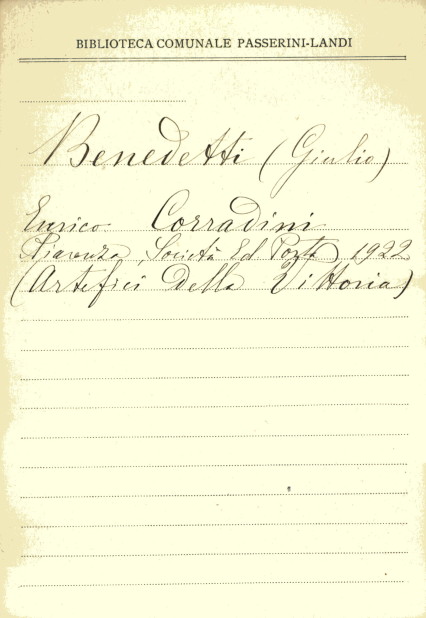 BIBLIOTECA COMUNALE PASSERINI-LANDI
Benedetti (Giulio)
Enrico Corradini
Piacenza, Società Ed Pozta, 1922
(Artefici della Vittoria)